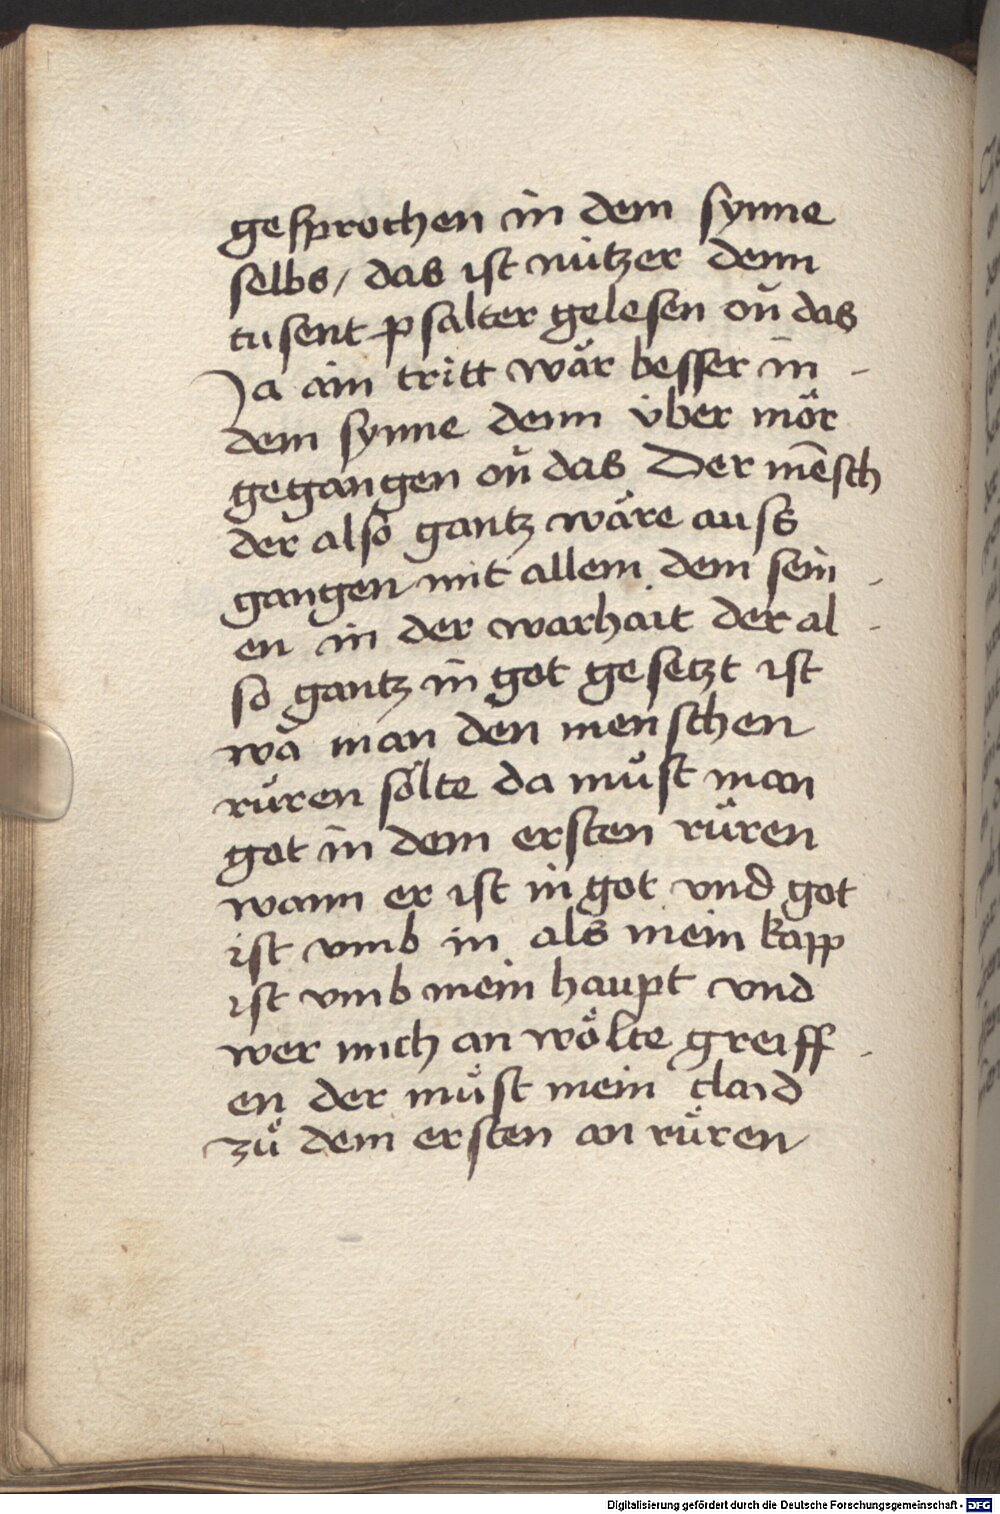 gesprochen in dem synne
selbs / das ist nützer denn
tusent psalter gelesen on̄ das
Ja ain tritt wär besser in -
dem synne denn über mör
gegangen on̄ das Der mēsch
der also gantz wäre auss
gangen mit allem dem sein -
en in der warhait der al -
so gantz in got gesetzt ist
wa man den menschen
rüren sölte da muͦst man
got in dem ersten rüren
wann er ist in got vnd got
ist vmb in als mein kapp
ist vmb mein haupt vnd
wer mich an wölte greiff -
en der müst mein claid
zuͦ dem ersten an rüren
Digitalisierung gefördert durch die Deutsche Forschungsgemeinschaft - DFG